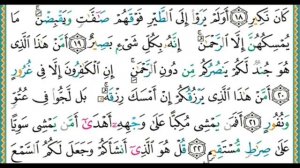 كَانَ نَكِيرِ ١٨ أَوَلَمْ يَرَوْا۟ إِلَى ٱلطَّيْرِ فَوْقَهُمْ صَـٰٓفَّـٰتٍ وَيَقْبِضْنَ ۚ مَا
يُمْسِكُهُنَّ إِلَّا ٱلرَّحْمَـٰنُ ۚ إِنَّهُۥ بِكُلِّ شَىْءٍۭ بَصِيرٌ ١٩ أَمَّنْ هَـٰذَا ٱلَّذِى
هُوَ جُندٌ لَّكُمْ يَنصُرُكُم مِّن دُونِ ٱلرَّحْمَـٰنِ ۚ إِنِ ٱلْكَـٰفِرُونَ إِلَّا فِى غُرُورٍ
٢٠ أَمَّنْ هَـٰذَا ٱلَّذِى يَرْزُقُكُمْ إِنْ أَمْسَكَ رِزْقَهُۥ ۚ بَل لَّجُّوا۟ فِى عُتُوٍّ
وَنُفُورٍ ٢١ أَفَمَن يَمْشِى مُكِبًّا عَلَىٰ وَجْهِهِۦٓ أَهْدَىٰٓ أَمَّن يَمْشِى سَوِيًّا
عَلَىٰ صِرَٰطٍ مُّسْتَقِيمٍ ٢٢ قُلْ هُوَ ٱلَّذِىٓ أَنشَأَكُمْ وَجَعَلَ لَكُمُ